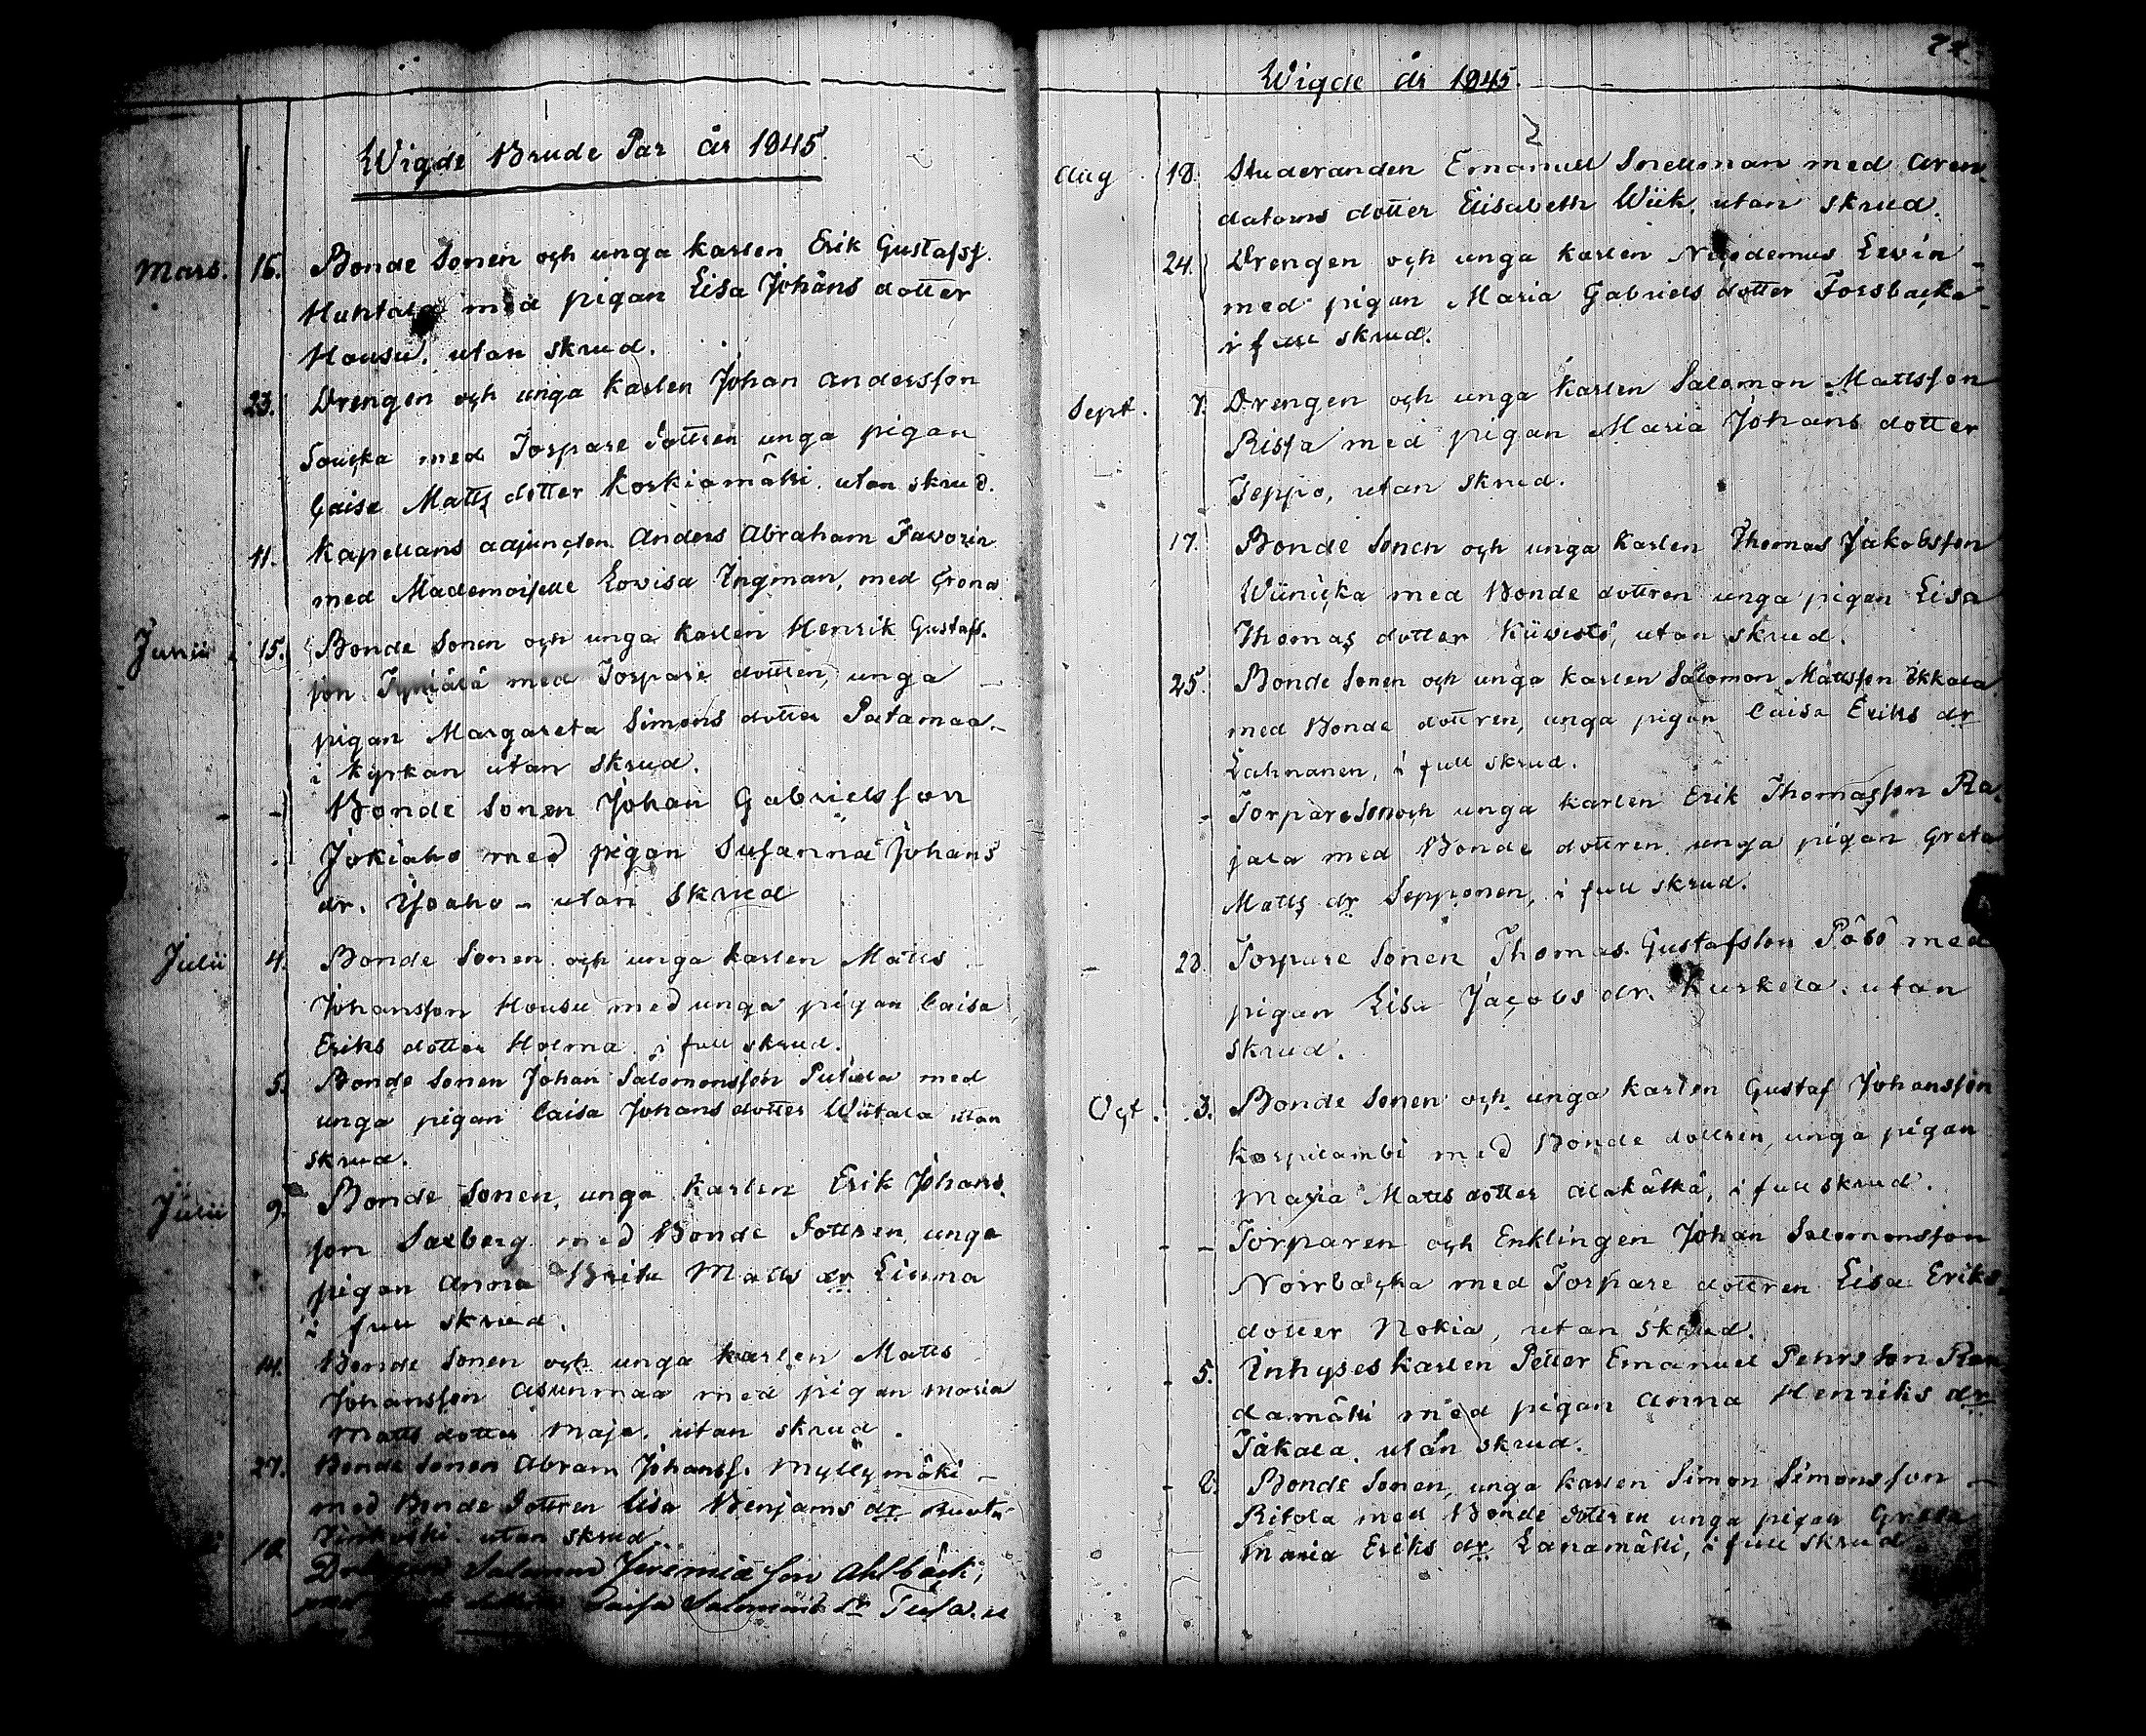 Wigde Brude Par år 1845.
Mars. 16. Bonde Sonen och unga karlen Erik Gustafss.
Huhtala med pigan Lisa Johans dotter
Housu. utan skrud.
23. Drengen och unga karlen Johan Andersson
Souka med Torpare dottren unga pigan
Caisa Matts dotter Koskiamäki. utan skrud.
11. Kapellans adjuncten Anders Abraham Favorin
med Mademoiselle Lovisa Ingman, med Crona
Junii 15. Bonde Sonen och unga karlen Henrik Gustafs-
son med Torpare dottren, unga
pigan Margareta Simons dotter Patamaa.
i kyrkan utan skrud.
- - Bonde Sonen Johan Gabrielsson
Jokiaho med pigan Susanna Johans
dr. Ysoaho - utan skrud
Julii 4. Bonde Sonen och unga karlen Matts
Johansson Housu med unga pigan Caisa
Eriks dotter Holma i full skrud.
5. Bonde Sonen Johan Salomonsson med
unga pigan Caisa Johans dotter Wiitala utan
skrud.
Julii 9. Bonde Sonen, unga karlen Erik Johans-
son Saxberg med Bonde dottren, unga
pigan Anna Brita Matts dr Liuma
i full skrud.
14. Bonde Sonen och unga karlen Matts
Johansson Asunmaa med pigan Maria
Matts dotter Maja. utan skrud.
27. Bonde Sonen Abram Johanss. Myllymäki
med Bonde dottren Lisa Benjams dr
utan skrud
18 Salomon Jeremiasson Ahlbäck,
Caisa Salomons dr Tusa. u
Wigde år 1845.
Aug. 18. Studeranden Emanuel Snellman med Aren-
dators dotter Elisabeth Wiik. utan skrud.
24. Drengen och unga karlen Nicodemus Levin
med pigan Maria Gabriels dotter Forsbacka
i full skrud.
Sept. 7. Drengen och unga karlen Salomon Mattsson
Rissa med pigan Maria Johans dotter
Jeppo, utan skrud.
17. Bonde Sonen och unga karlen Thomas Jakobsson
Wiinicka med Bonde dottren unga pigan Lisa
Thomas dotter Kiivistö, utan skrud.
25. Bonde Sonen och unga karlen Salomon Mattsson Ikkala
med Bonde dottren, unga pigan Caisa Eriks dr
Lahnanen, i full skrud.
- Torpare Son och unga karlen Erik Thomasson Ra-
jala med Bonde dottren unga pigan Greta
Matts dr Sepponen, i full skrud.
- 28 Torpare Sonen Thomas Gustafsson Påsö med
pigan Lisa Jacobs dr. Kuskela. utan
skrud.
Oct. 3. Bonde Sonen och unga karlen Gustaf Johansson
Korpilambi med Bonde dottren, unga pigan
Maria Matts dotter Alakätkä, i full skrud.
- - Torparen och Enklingen Johan Salomonsson
Norrbacka med Torpare dottren Lisa Eriks
dotter Nokia, utan skrud.
- 5. Inhyses karlen Petter Emanuel Pehrsson Ran
damäki med pigan Anna Henriks dr
Jäkala. utan skrud.
- 8. Bonde Sonen, unga karlen Simon Simonsson
Ritola med Bonde dottren unga pigan Greta
Maria Eriks dr Lanamäki, i full skrud